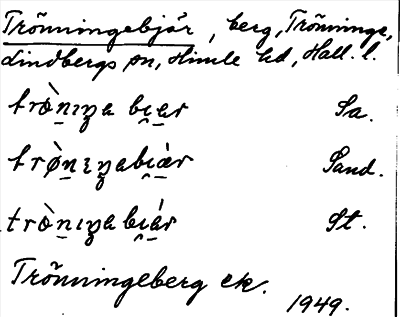 Trönningebjär, berg, Trönninge,
Lindbergs sn, Himle hd, Hall. l.
trò̱nıŋa bı̯a̱r Sa.
trø̀ṉıŋabı̯àr Sand.
trò̱nıŋabı̯ár St.
Trönningeberg ek.
1949.